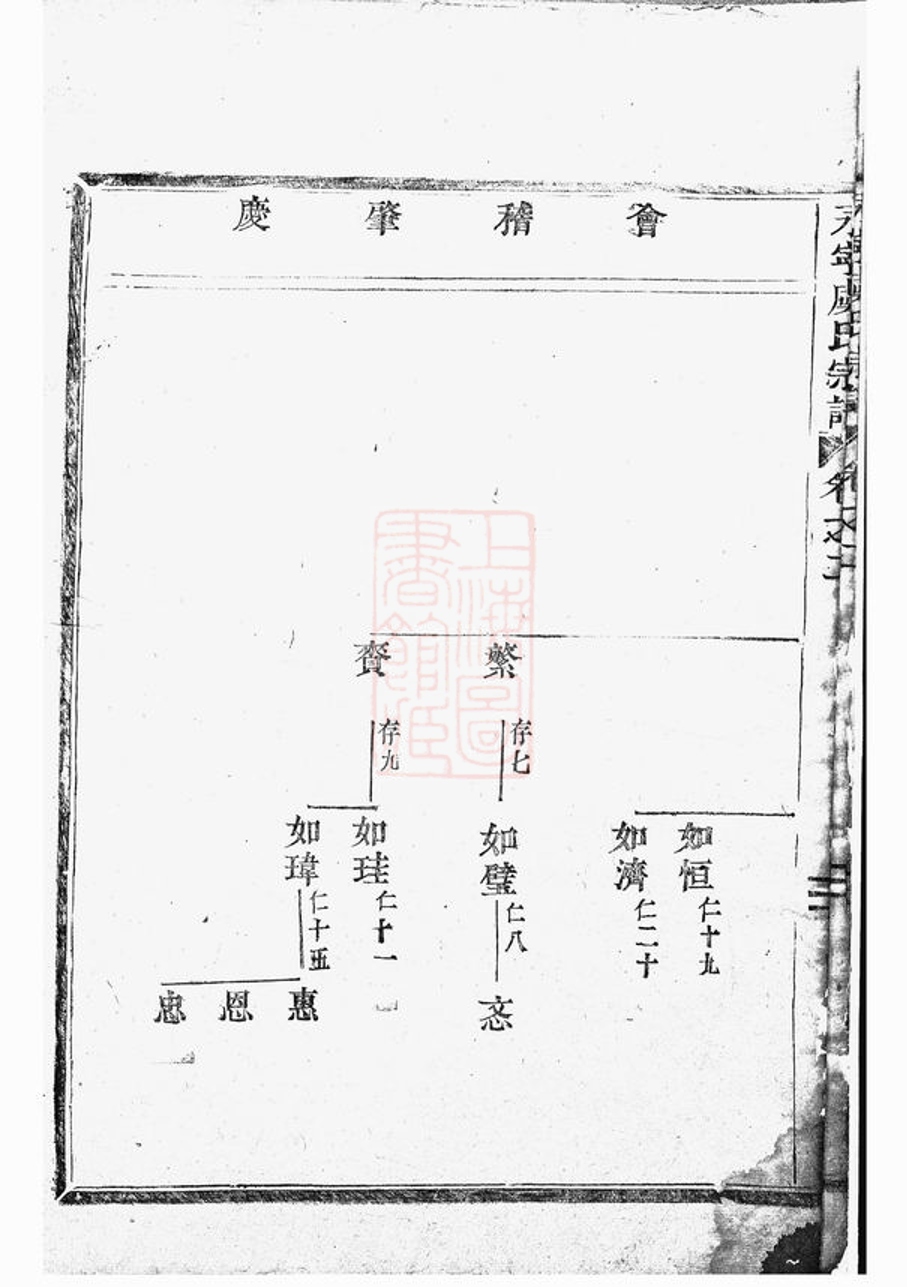 會稽肇慶
繁
賚
存七
存九
如恒
仁十九
如濟
仁二十
如璧
仁八
如珪
仁十一
如瑋
仁十五
忞
惠
恩
忠
氏宗譜
卷之二
上海圖書館藏